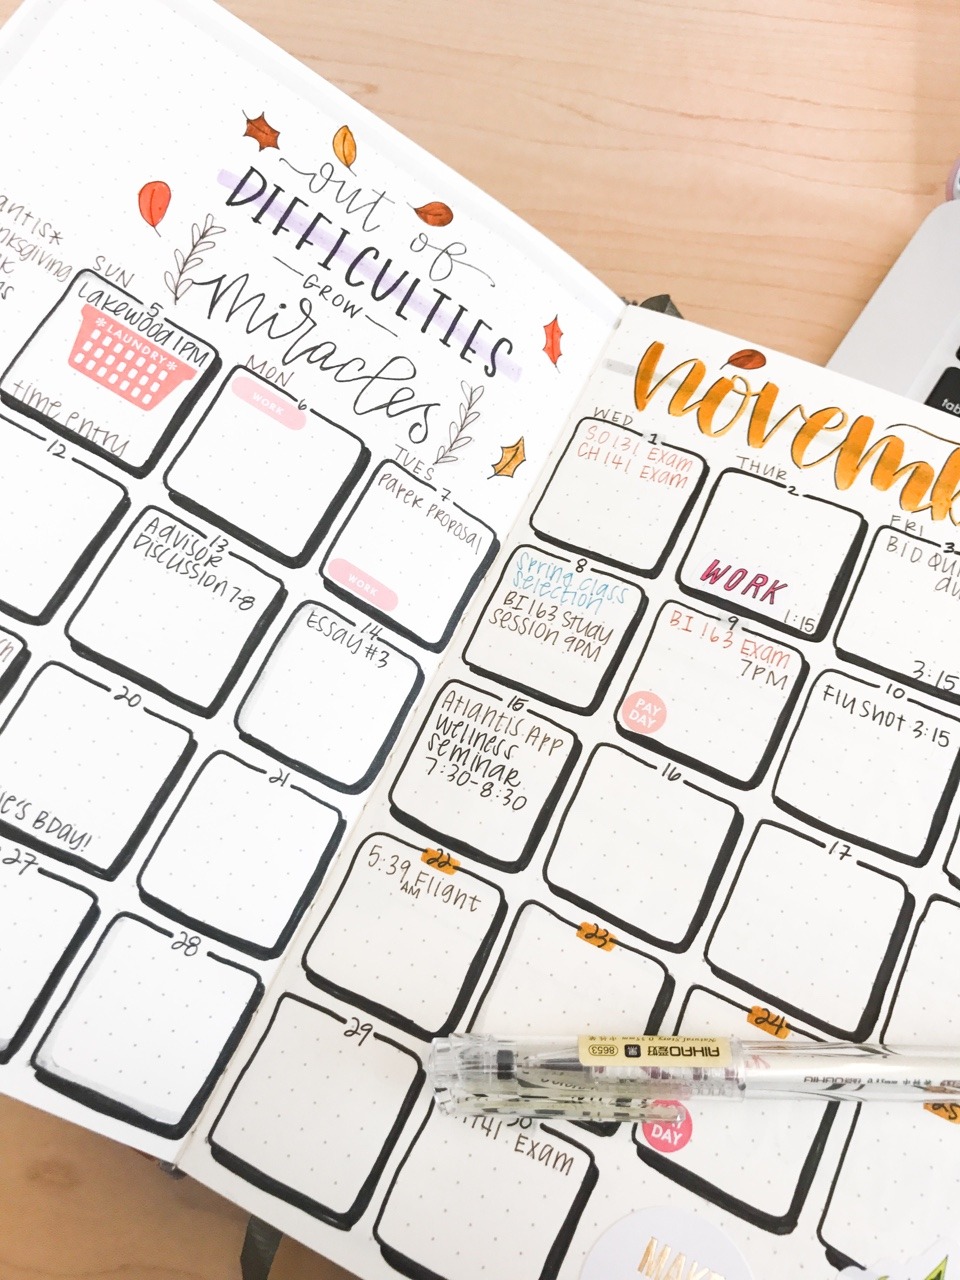 out of
DIFFICULTIES
GROW
Miracles
SUN
5
Lakewood 1PM
*LAUNDRY*
time entry
MON
6
WORK
TUES
7
Paper Proposal
WORK
12
13
Advisor
Discussion 7-8
14
Essay #3
20
BDAY!
21
27
28
WED
1
SO131 Exam
CH141 Exam
THUR
2
WORK
1:15
FRI
3
BIO
3:15
8
Spring class
selection
BI163 Study
session 9PM
9
BI163 Exam
7PM
PAY
DAY
10
Flu Shot 3:15
15
Atlantis App
Wellness
seminar
7:30-8:30
16
17
22
5:39 Flight
AM
23
24
DAY
25
29
Exam
AIHAO
8653